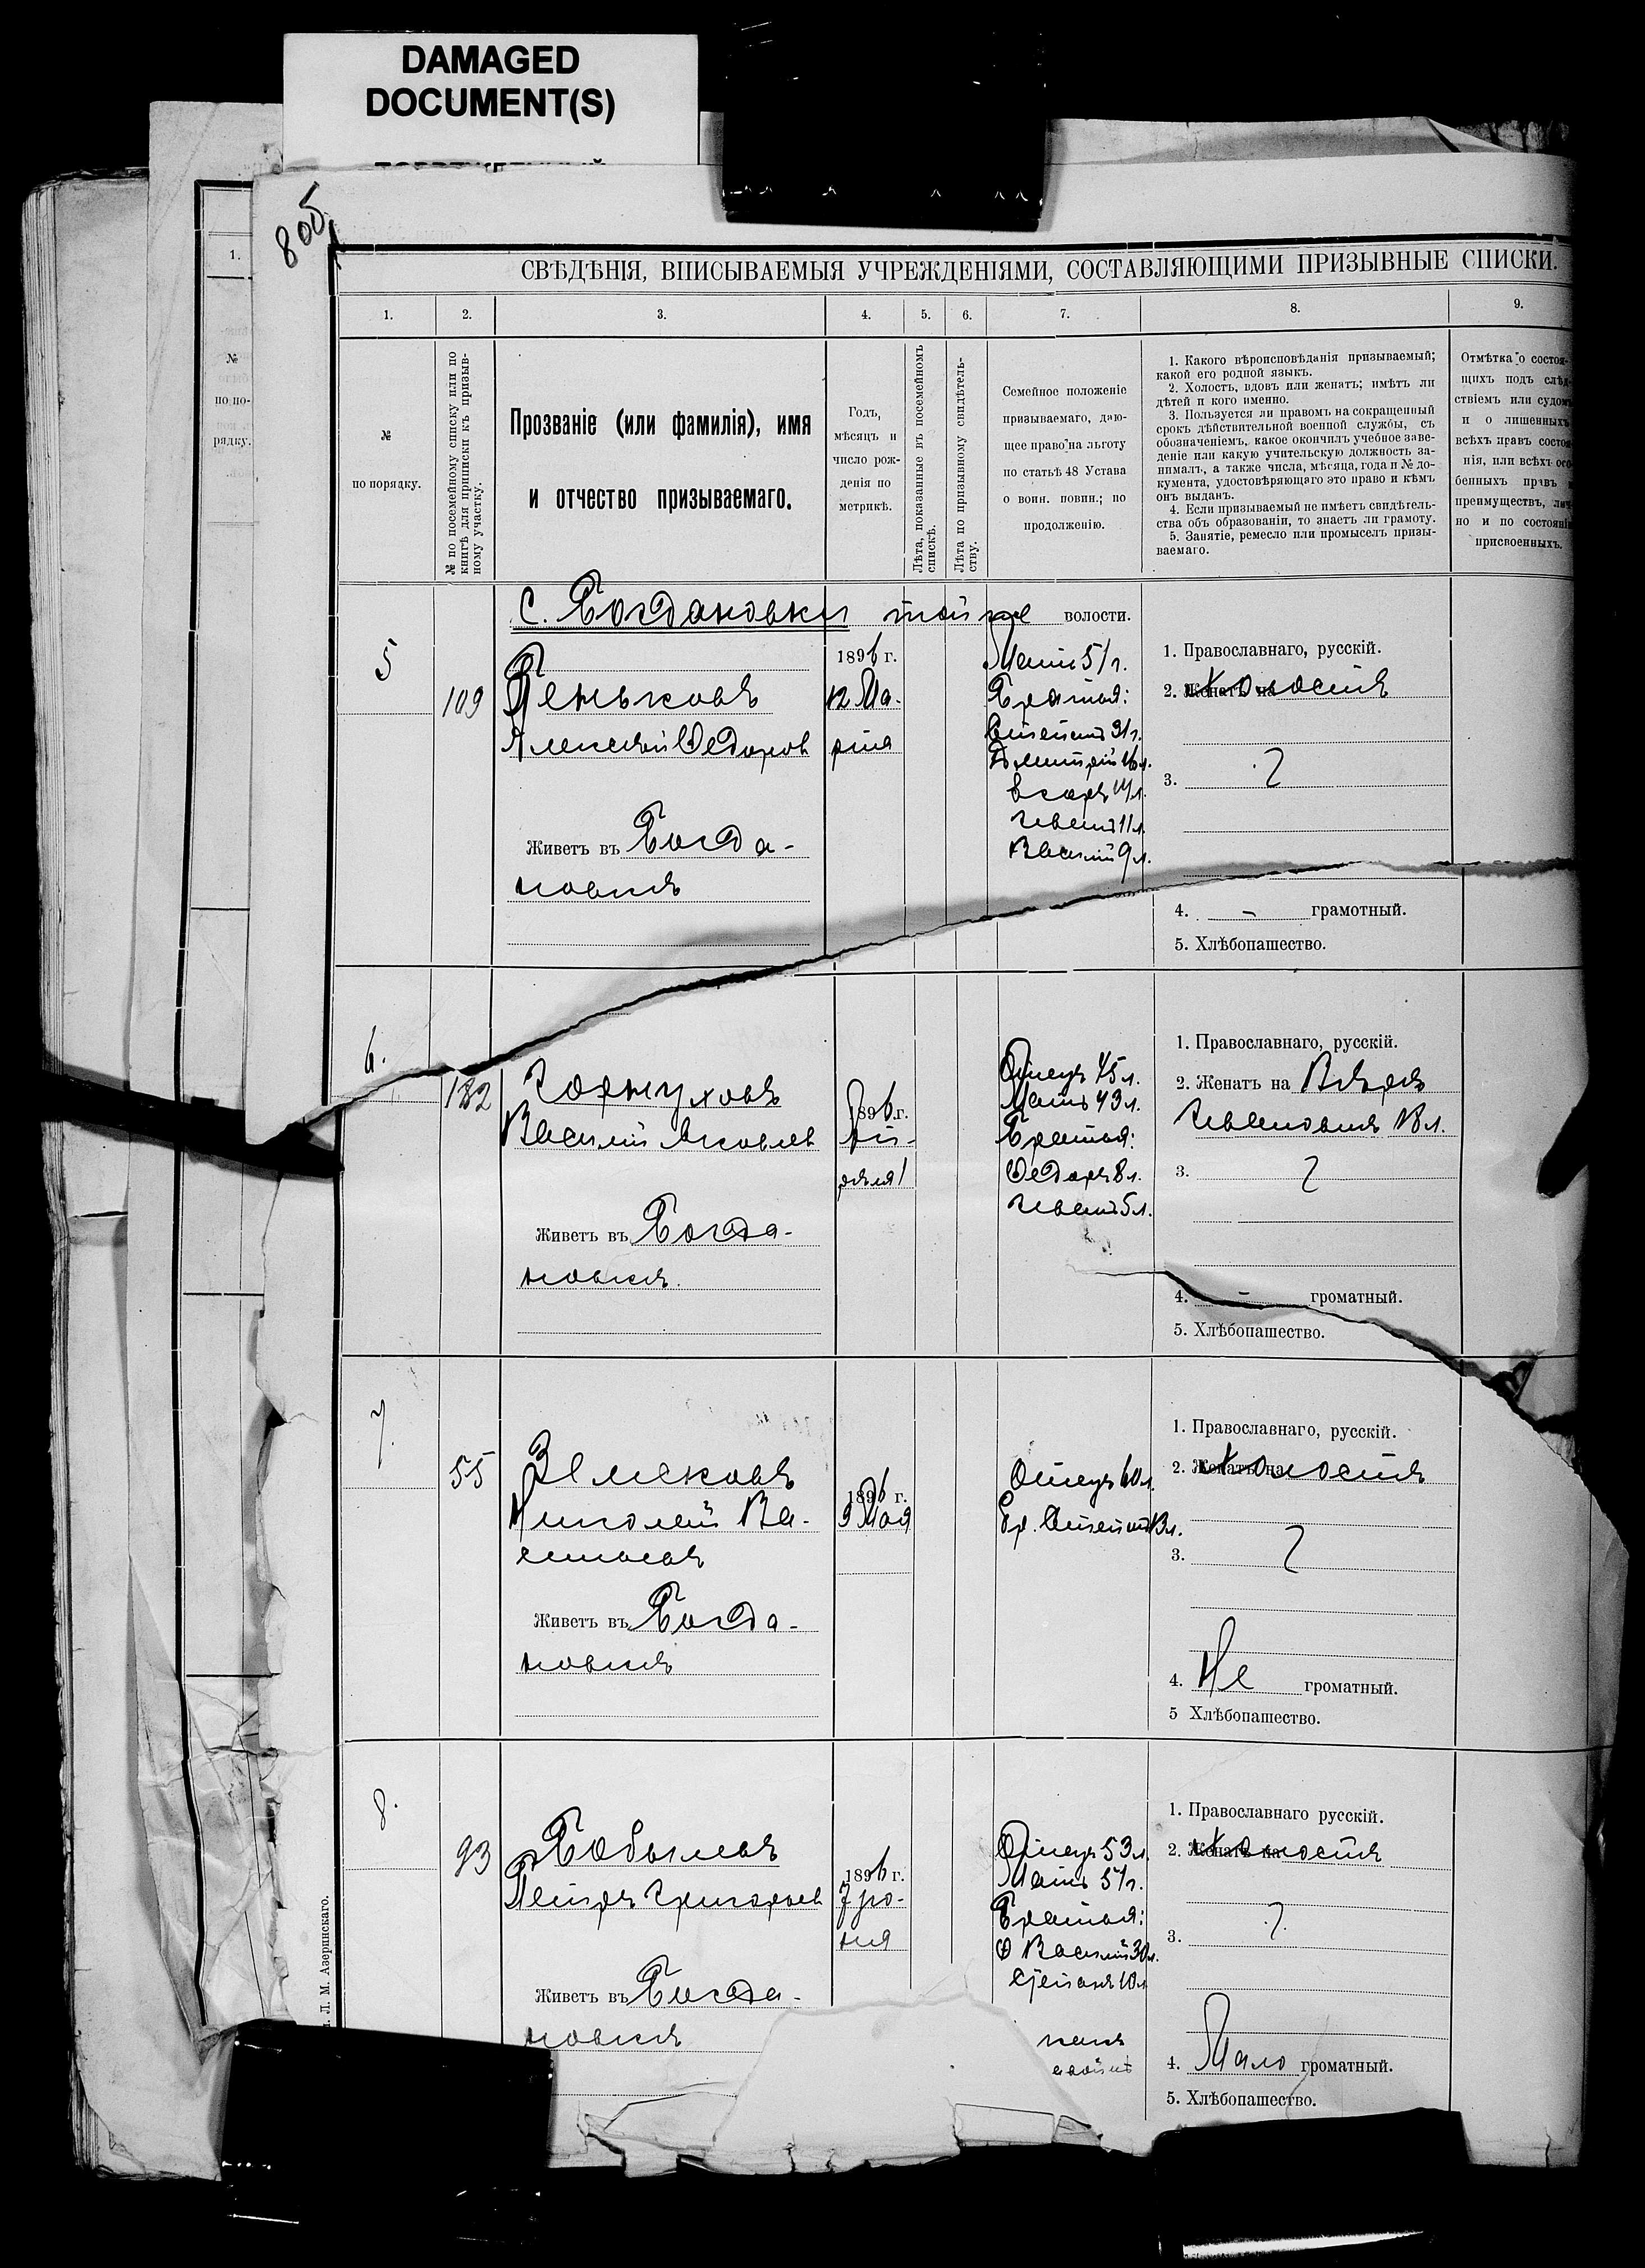 DAMAGED
DOCUMENT(S)
805
1.
№
по по-
рядку.
СВѢДѢНІЯ, ВПИСЫВАЕМЫЯ УЧРЕЖДЕНІЯМИ, СОСТАВЛЯЮЩИМИ ПРИЗЫВНЫЕ СПИСКИ.
1. 2. 3. 4. 5. 6. 7. 8. 9.
№
по порядку.
№ по посемейному списку или по
книгѣ для приписки къ призыв-
ному участку.
Прозваніе (или фамилія), имя
и отчество призываемаго.
Годъ,
мѣсяцъ и
число рож-
денія по
метрикѣ.
Лѣта, показанные въ посемейномъ
спискѣ.
Лѣта по призывному свидѣтель-
ству.
Семейное положеніе
призываемаго, даю-
щее право на льготу
по статьѣ 48 Устава
о воин. повин.; по
продолженію.
1. Какого вѣроисповѣданія призываемый;
какой его родной языкъ.
2. Холостъ, вдовъ или женатъ; имѣтъ ли
дѣтей и кого именно.
3. Пользуется ли правомъ на сокращенный
срокъ дѣйствительной военной службы, съ
обозначеніемъ, какое окончилъ учебное заве-
деніе или какую учительскую должность за-
нималъ, а также числа, мѣсяца, года и № до-
кумента, удостовѣряющаго это право и кѣмъ
онъ выданъ.
4. Если призываемый не имѣетъ свидѣтель-
ства объ образованіи, то знаетъ ли грамоту.
5. Занятіе, ремесло или промыселъ призы-
ваемаго.
Отмѣтка о состоя-
щихъ подъ слѣд-
ствіемъ или судомъ
и о лишенныхъ
всѣхъ правъ состоя-
нія, или всѣхъ осо-
бенныхъ правъ и
преимуществъ, лич-
но и по состоянію
присвоенныхъ.
С. Богдановки той же волости.
5
109
Пеньковъ
Алексѣй Федоров
Живетъ въ Богда-
новкѣ
1896 г.
12 Ма-
рта
Мать 51 г.
Братья:
31 г.
Дмитрій 16 л.
14 л.
Иванъ 11 л.
Василій 9 л.
1. Православнаго, русскій.
2. Женатъ на Холостъ
3.
4. - грамотный.
5. Хлѣбопашество.
6.
182
Горнуховъ
Василій Яковлев
Живетъ въ Богда-
новкѣ.
1896 г.
Ап-
рѣля 1
Отецъ 45 л.
Мать 43 л.
Братья:
Федоръ 8 л.
Иванъ 5 л.
1. Православнаго, русскій.
2. Женатъ на Вѣрѣ
Ивановнѣ 18 л.
3.
4. - громатный.
5. Хлѣбопашество.
7.
55
Земсковъ
Николай Ва-
сильевъ
Живетъ въ Богда-
новкѣ
1896 г.
9 Мая
Отецъ 60 л.
Бр. 13 л.
1. Православнаго, русскій.
2. Женатъ на Холостъ
3.
4. Не громатный.
5 Хлѣбопашество.
8.
93
Бобылевъ
Петръ Григорьев
Живетъ въ Богда-
новкѣ
1896 г.
7 Ію-
ня
Отецъ 53 л.
Мать 51 г.
Братья:
Василій 30 л.
Степанъ 10 л.
1. Православнаго русскій.
2. Женатъ на Холостъ
3.
4. Мало громатный.
5. Хлѣбопашество.
Л. М. Азеринскаго.